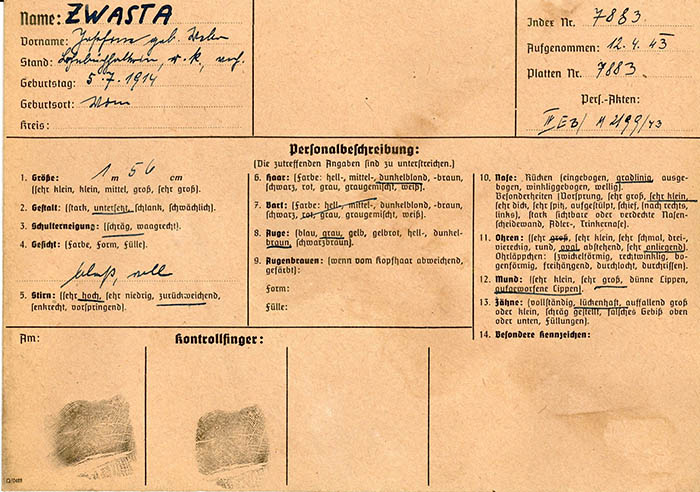 Name: ZWASTA
Vorname: geb.
Stand: verh.
Geburtstag: 5.7.1914
Geburtsort: Wien
Kreis:
Index Nr. 7883.
Aufgenommen: 12.4.43
Platten Nr. 7883.
Pers.-Akten:
2199/43
Personalbeschreibung:
(Die zutreffenden Angaben sind zu unterstreichen.)
1. Größe: 1 m 56 cm
(sehr klein, klein, mittel, groß, sehr groß).
2. Gestalt: (stark, untersetzt, schlank, schwächlich).
3. Schulterneigung: (schräg, waagrecht).
4. Gesicht: (Farbe, Form, Fülle).
blaß, voll
5. Stirn: (sehr hoch, sehr niedrig, zurückweichend,
senkrecht, vorspringend).
6. Haar: (Farbe: hell-, mittel-, dunkelblond, -braun,
schwarz, rot, grau, graugemischt, weiß).
7. Bart: (Farbe: hell-, mittel-, dunkelblond, -braun,
schwarz, rot, grau, graugemischt, weiß).
8. Auge: (blau, grau, gelb, gelbrot, hell-, dunkel-
braun, schwarzbraun).
9. Augenbrauen: (wenn vom Kopfhaar abweichend,
gefärbt):
Form:
Fülle:
10. Nase: Rücken (eingebogen, gradlinig, ausge-
bogen, winkliggebogen, wellig).
Besonderheiten (Vorsprung, sehr groß, sehr klein,
sehr dick, sehr spitz, aufgestülpt, schief, (nach rechts,
links), stark sichtbare oder verdeckte Nasen-
scheidewand, Adler-, Trinkernase).
11. Ohren: (sehr groß, sehr klein, sehr schmal, drei-,
vierechig, rund, oval, abstehend, sehr anliegend)
Ohrläppchen: (zwickelförmig, rechtwinklig, bo-
genförmig, freihängend, durchlocht, durchrissen).
12. Mund: (sehr klein, sehr groß, dünne Lippen,
aufgeworfene Lippen).
13. Zähne: (vollständig, lückenhaft, auffallend groß
oder klein, schräg gestellt, falsches Gebiß oben
oder unten, Füllungen).
14. Besondere Kennzeichen:
Am:
Kontrollfinger: